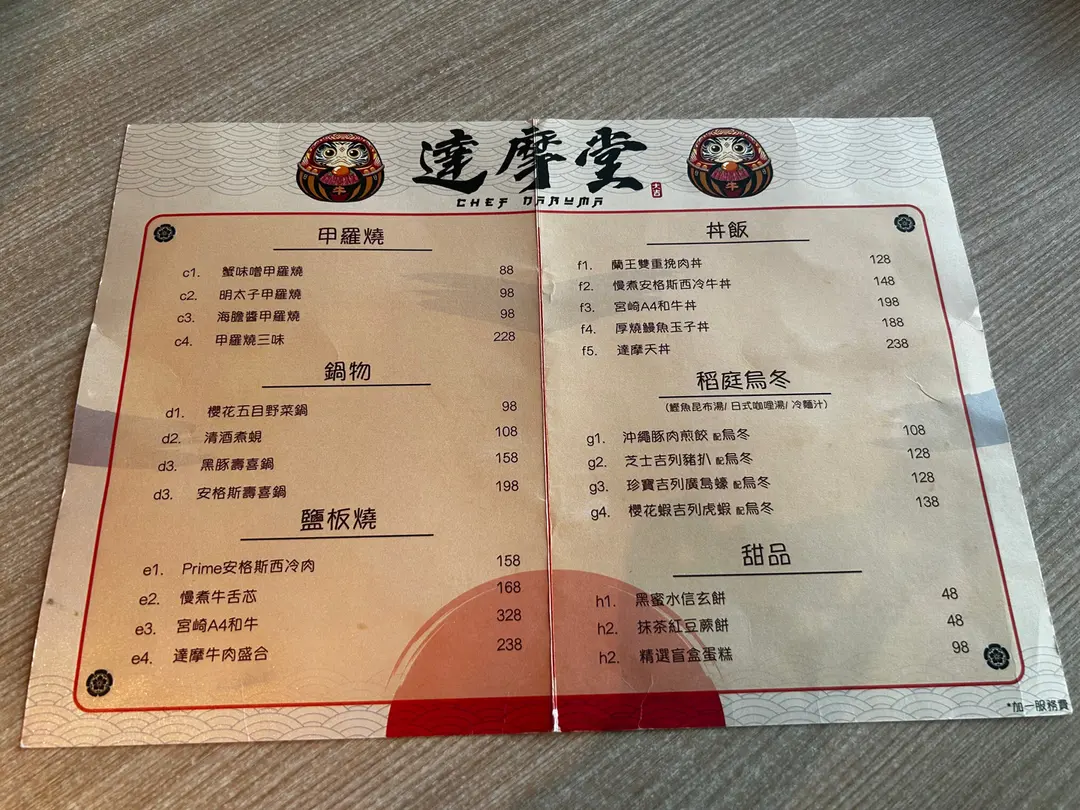 達摩堂
大吉
CHEF DARUMA
牛
牛
甲羅燒
c1. 蟹味噌甲羅燒 88
c2. 明太子甲羅燒 98
c3. 海膽醬甲羅燒 98
c4. 甲羅燒三味 228
鍋物
d1. 櫻花五目野菜鍋 98
d2. 清酒煮蜆 108
d3. 黑豚壽喜鍋 158
d3. 安格斯壽喜鍋 198
鹽板燒
e1. Prime安格斯西冷肉 158
e2. 慢煮牛舌芯 168
e3. 宮崎A4和牛 328
e4. 達摩牛肉盛合 238
丼飯
f1. 蘭王雙重挽肉丼 128
f2. 慢煮安格斯西冷牛丼 148
f3. 宮崎A4和牛丼 198
f4. 厚燒鰻魚玉子丼 188
f5. 達摩天丼 238
稻庭烏冬
(鰹魚昆布湯/日式咖喱湯/冷麵汁)
g1. 沖繩豚肉煎餃 配烏冬 108
g2. 芝士吉列豬扒 配烏冬 128
g3. 珍寶吉列廣島蠔 配烏冬 128
g4. 櫻花蝦吉列虎蝦 配烏冬 138
甜品
h1. 黑蜜水信玄餅 48
h2. 抹茶紅豆蕨餅 48
h2. 精選盲盒蛋糕 98
*加一服務費